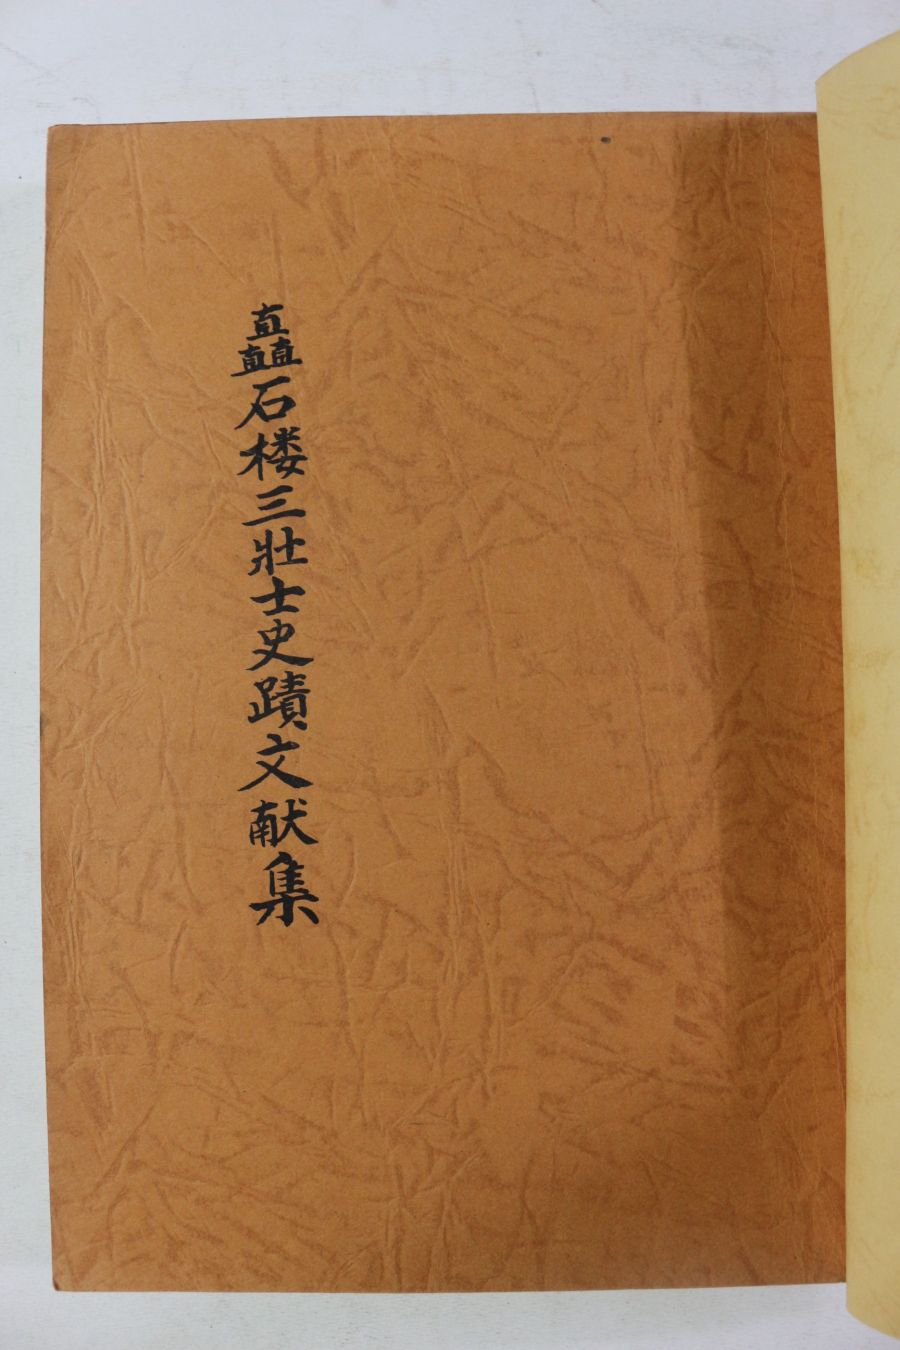 矗石楼三壯士史蹟文献集